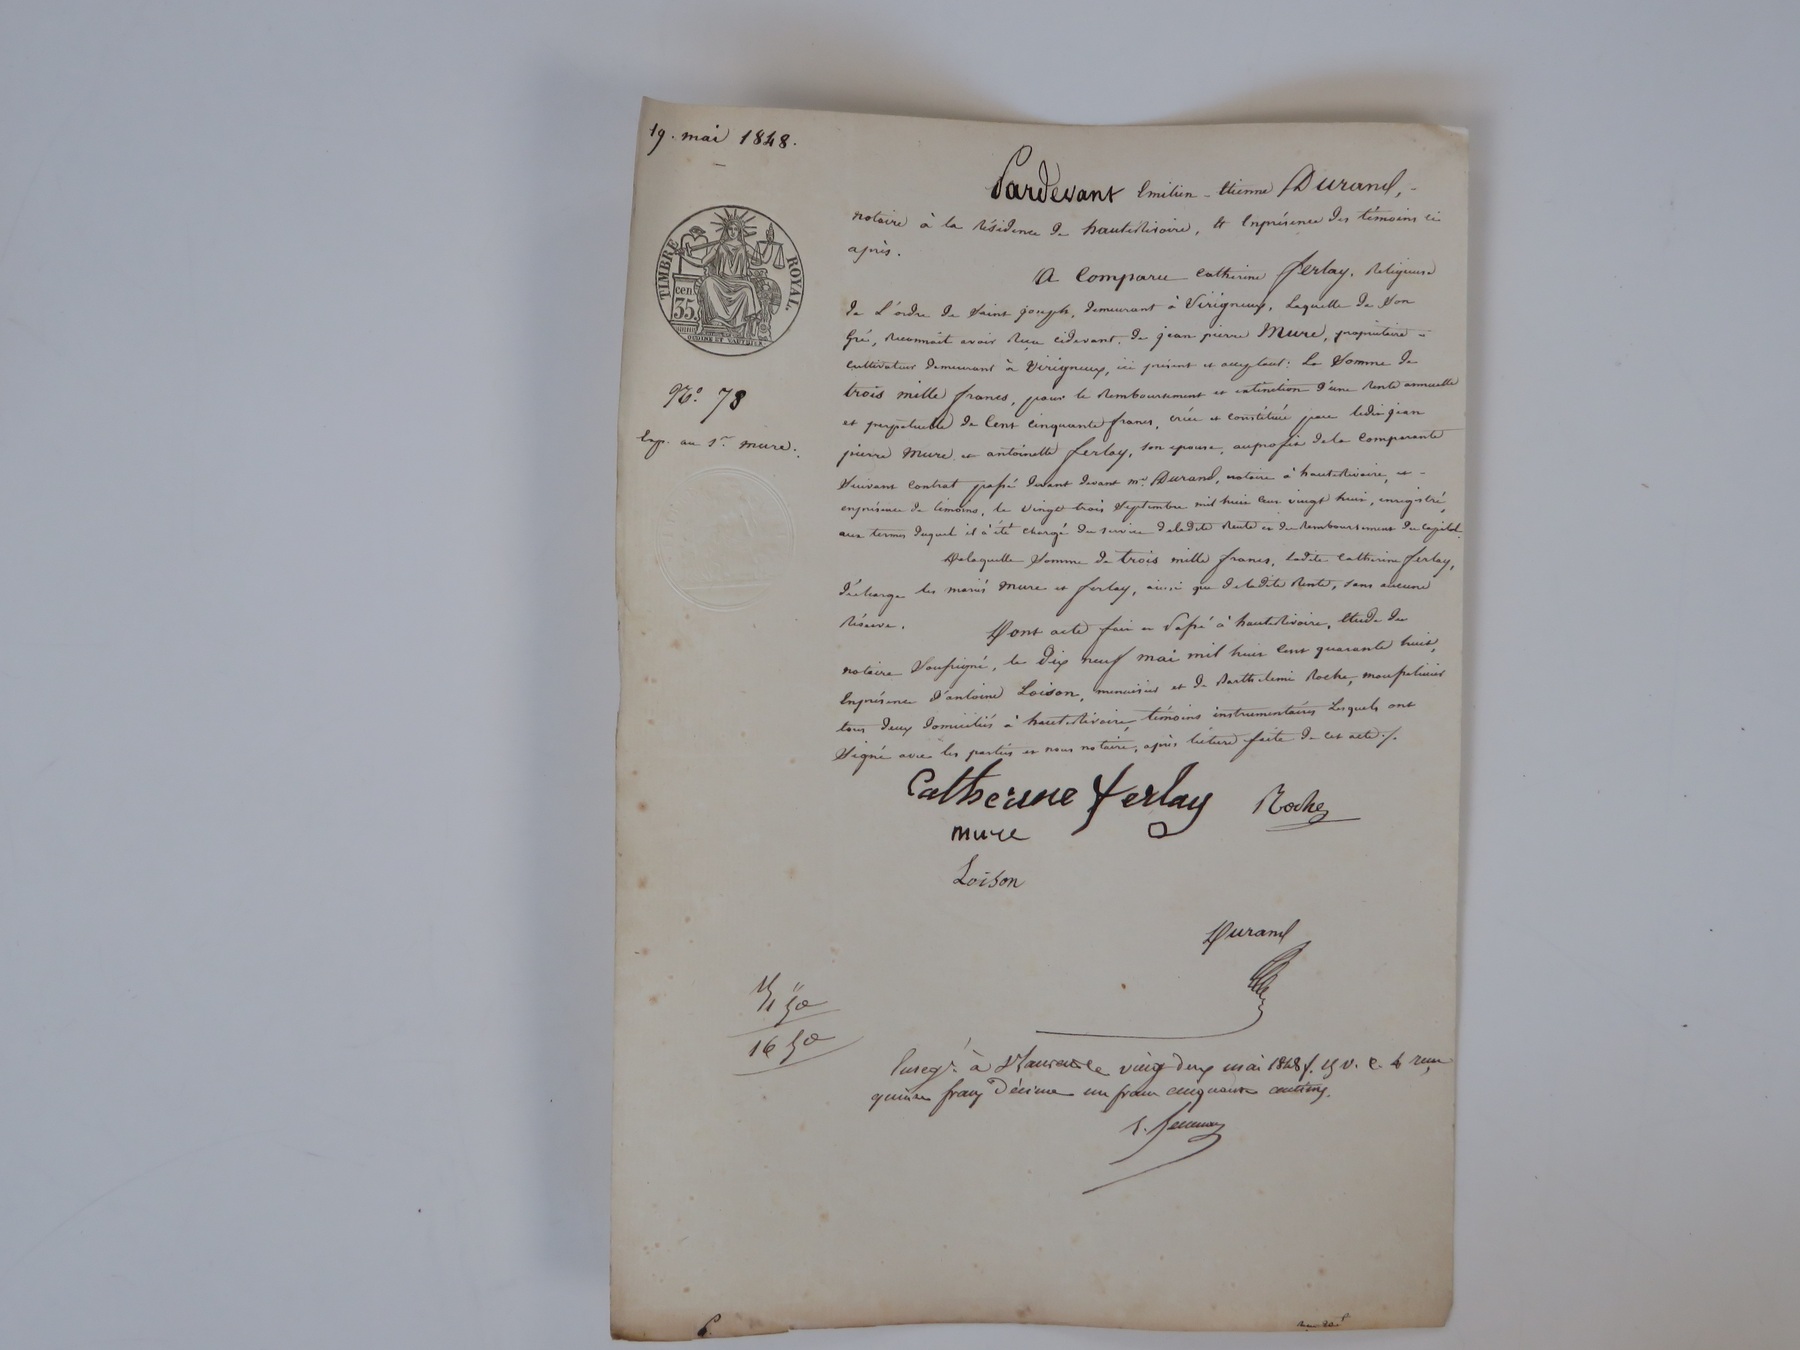 19. mai 1848.
TIMBRE ROYAL.
cen. 35.
No. 78
Exp. au Sr. mure.
Pardevant Emilien-Etienne Durand,
notaire à la résidence de hauteRivoire, & Enprésence des témoins ci
après.
A Comparu Catherine ferlay, Religieuse
de L'ordre de Saint joseph, demeurant à Virigneux, Laquelle de Son
Gré, Reconnaît avoir Reçu cidevant, de jean pierre Mure, propriétaire
Cultivateur demeurant à Virigneux, ici présent et acceptant: La Somme de
trois mille francs, pour le Remboursement et extinction d'une Rente annuelle
et perpetuelle de Cent cinquante francs, créée et constituée par ledit jean
pierre Mure et antoinette ferlay, son epouse, auprofit dela Comparante
Suivant Contrat passé devant devant me. Durand, notaire à hauteRivoire, et
enprésence de témoins, le vingt trois Septembre mil huit cent vingt huit, enregistré,
aux termes duquel il a été chargé du service deladite Rente et du Remboursement du Capital.
Delaquelle Somme de trois mille francs, ladite Catherine ferlay,
décharge les mariés Mure et ferlay, ainsi que deladite Rente, sans aucune
Réserve.
Dont acte fait et Passé à hauteRivoire, Etude du
notaire Soussigné, le Dix neuf mai mil huit cent quarante huit,
Enprésence d'antoine Loison, menuisier et de Barthelemi Roche,
tous deux domiciliés à hauteRivoire, témoins instrumentaires Lesquels ont
Signé avec les parties et nous notaire, après lecture faite de cet acte ./.
Catherine ferlay Roche
mure
Loison
Durand
1 50
16 50
Enregé. à St Laurent le vingt deux mai 1848 f. v. c. 4 reçu
quinze francs Décime un franc cinquante centimes.